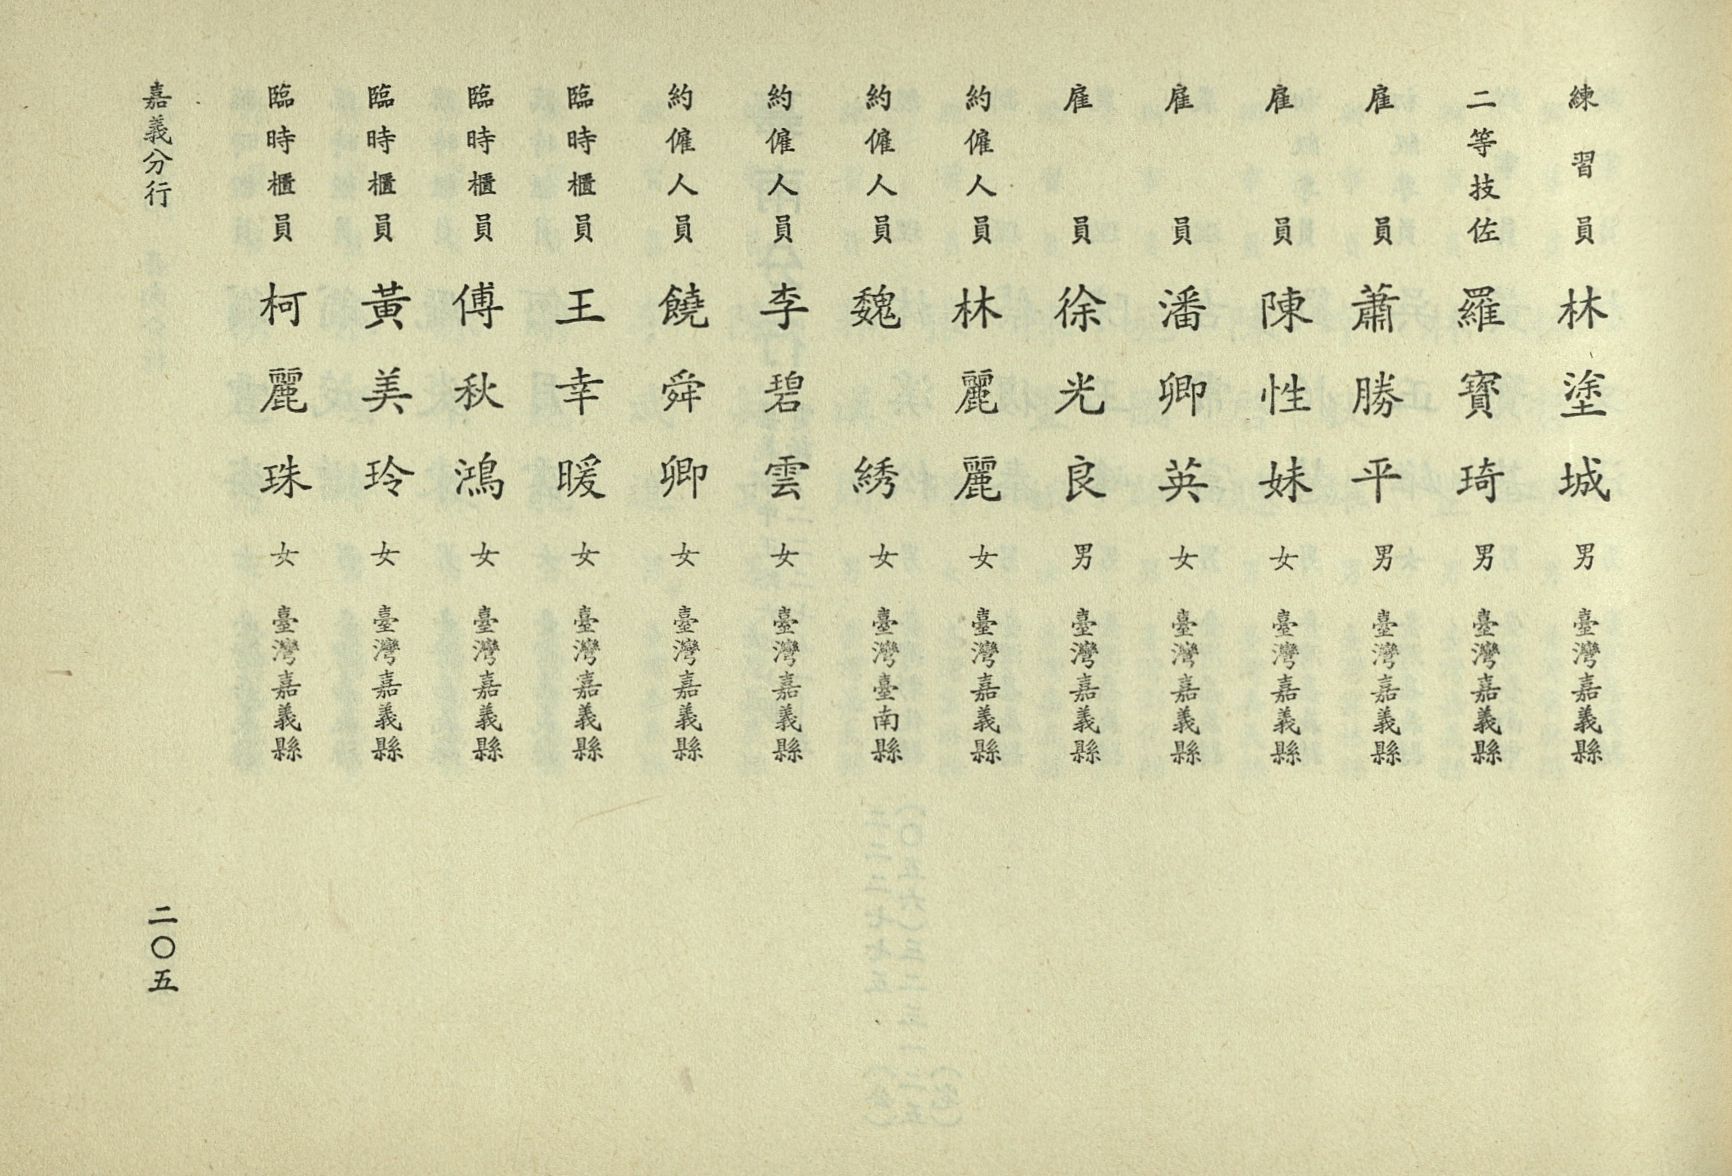 練習員 林塗城 男 臺灣嘉義縣
二等技佐 羅寶琦 男 臺灣嘉義縣
雇員 蕭勝平 男 臺灣嘉義縣
雇員 陳性妹 女 臺灣嘉義縣
雇員 潘卿英 女 臺灣嘉義縣
雇員 徐光良 男 臺灣嘉義縣
約僱人員 林麗麗 女 臺灣嘉義縣
約僱人員 魏綉 女 臺灣臺南縣
約僱人員 李碧雲 女 臺灣嘉義縣
約僱人員 饒舜卿 女 臺灣嘉義縣
臨時櫃員 王幸暖 女 臺灣嘉義縣
臨時櫃員 傅秋鴻 女 臺灣嘉義縣
臨時櫃員 黃美玲 女 臺灣嘉義縣
臨時櫃員 柯麗珠 女 臺灣嘉義縣
嘉義分行 二〇五